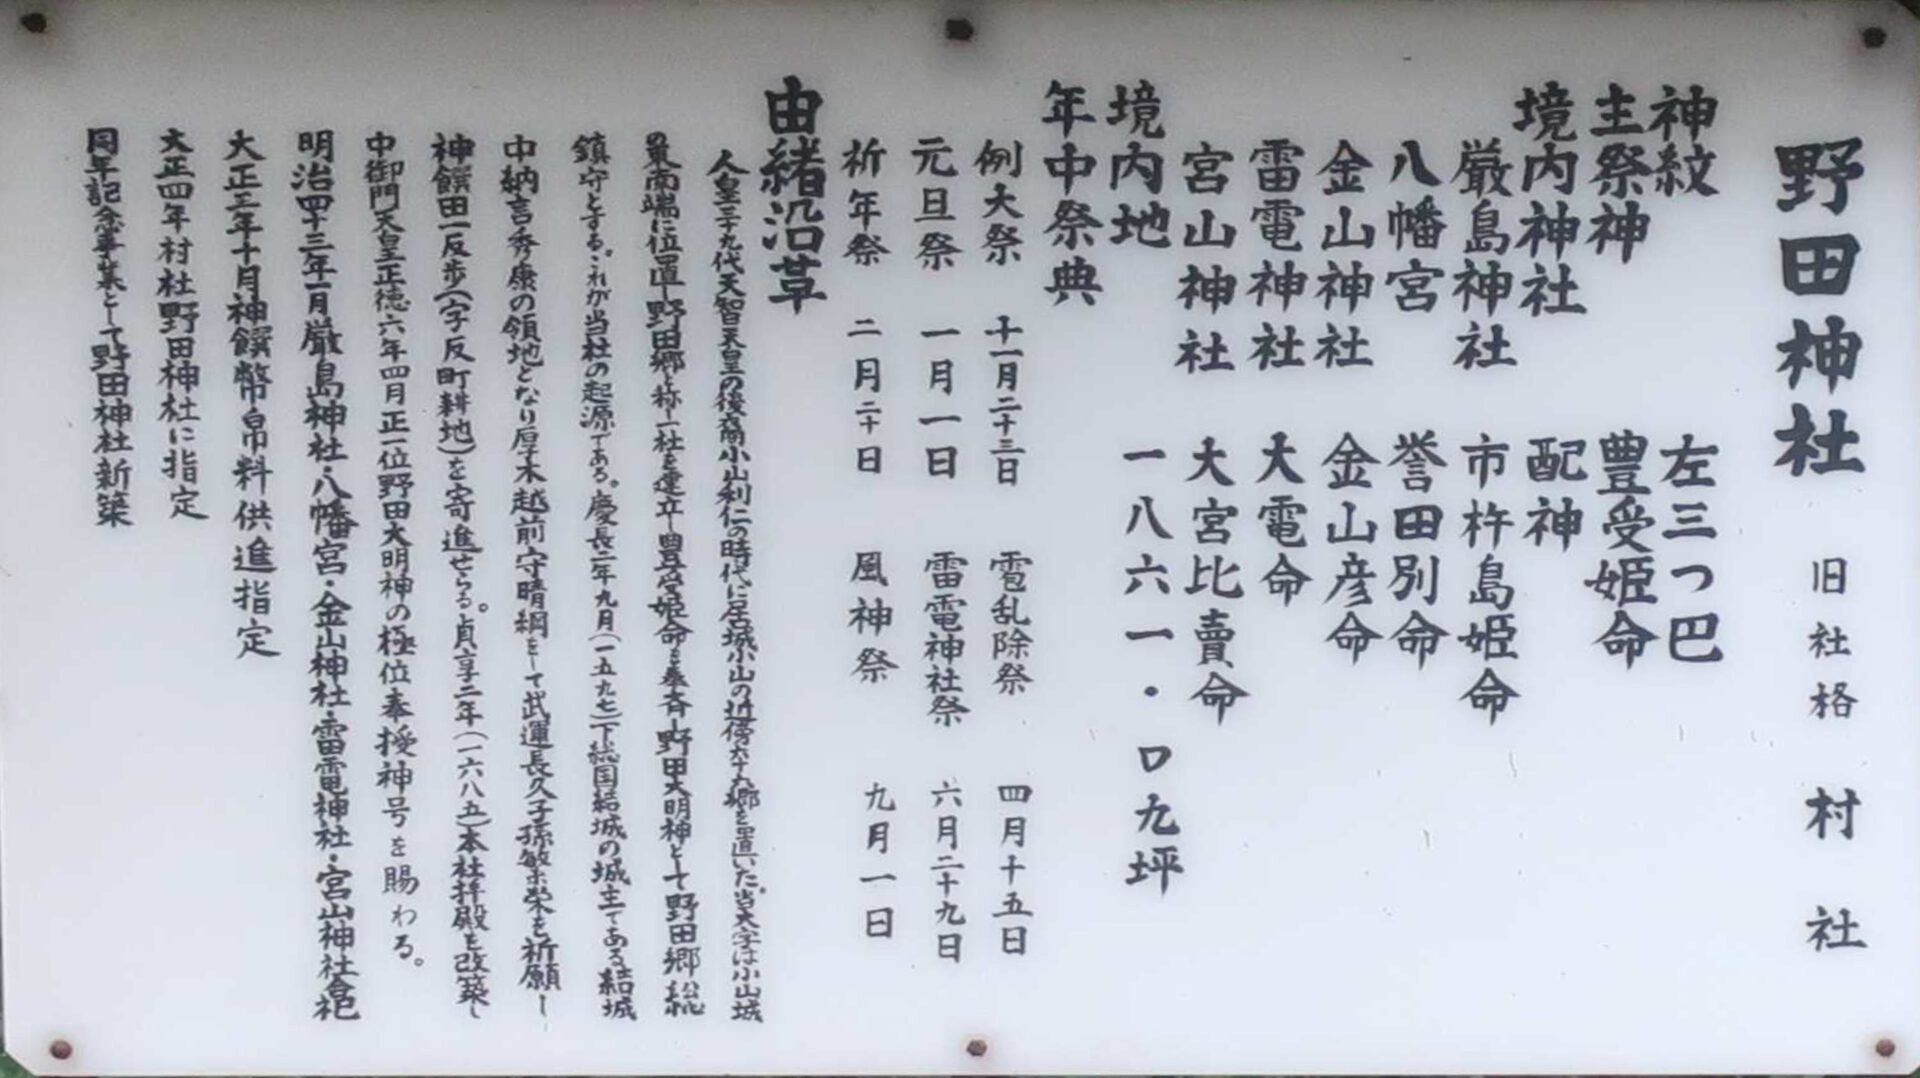 野田神社 旧社格 村社
神紋 左三つ巴
主祭神 豊受姫命
境内神社 配神
厳島神社 市杵島姫命
八幡宮 誉田別命
金山神社 金山彦命
雷電神社 大電命
宮山神社 大宮比賣命
境内地 一八六一・〇九坪
年中祭典
例大祭 十一月二十三日 雹乱除祭 四月十五日
元旦祭 一月一日 雷電神社祭 六月二十九日
祈年祭 二月二十日 風神祭 九月一日
由緒沿革
人皇三十九代天智天皇の後裔小山利仁の時代に居城小山の近傍六十九郷を置いた。当大字は小山城
の最南端に位置し野田郷と称し一社を建立し豊受姫命を奉斉し野田大明神として野田郷総
鎮守とする。これが当社の起源である。慶長二年九月(一五九七)下総国結城の城主である結城
中納言秀康の領地となり厚木越前守晴綱をして武運長久子孫繁栄を祈願し
神饌田一反歩(字反町耕地)を寄進せらる。貞享二年(一六八五)本社拝殿を改築し
中御門天皇正徳六年四月正一位野田大明神の極位奉授神号を賜わる。
明治四十三年一月厳島神社・八幡宮・金山神社・雷電神社・宮山神社合祀
大正三年十月神饌幣帛料供進指定
大正四年村社野田神社に指定
同年記念事業として野田神社新築